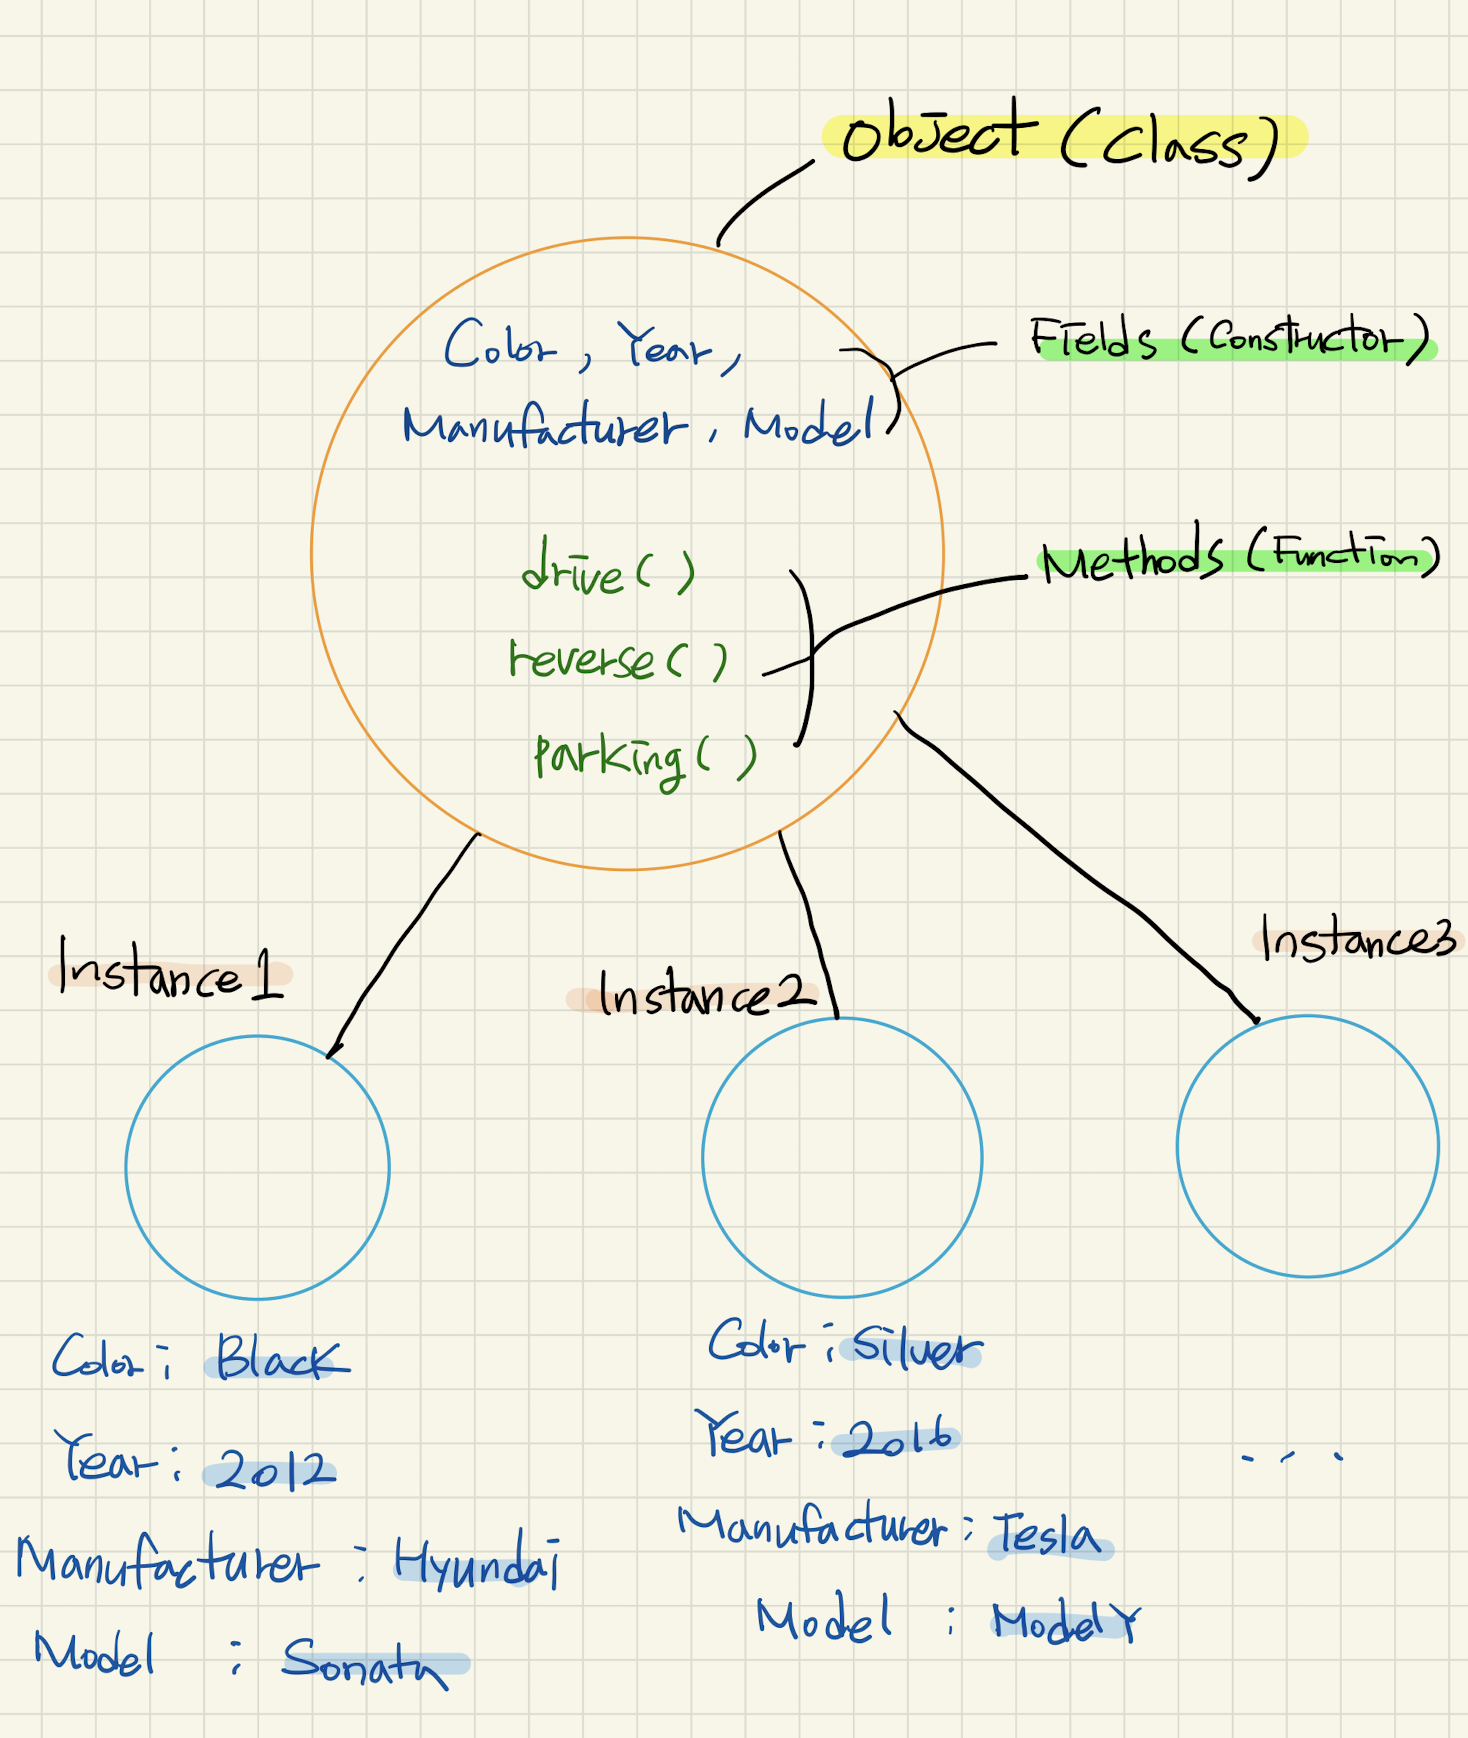 Object (class)
Color, Year,
Manufacturer, Model
Fields (Constructor)
drive( )
reverse( )
parking( )
Methods (Function)
Instance1
Instance2
Instance3
Color: Black
Year: 2012
Manufacturer: Hyundai
Model: Sonata
Color: Silver
Year: 2016
Manufacturer: Tesla
Model: ModelY
...